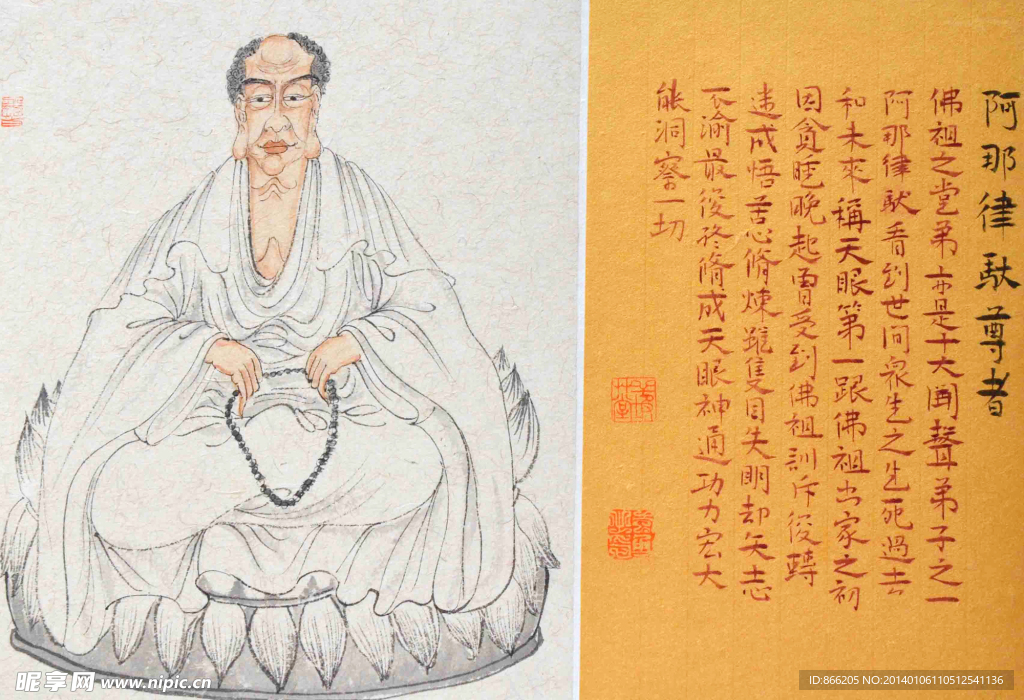 阿那律馱尊者
佛祖之堂弟亦是十大聞聲弟子之一
阿那律馱看到世间眾生之生死過去
和未來稱天眼第一跟佛祖出家之初
因貪睡晚起曾受到佛祖訓斥後轉
迷成悟苦心脩煉雖隻目失明却矢志
不渝最後終脩成天眼神通功力宏大
能洞察一切
昵享网 www.nipic.cn
ID:866205 NO:20140106110512541136